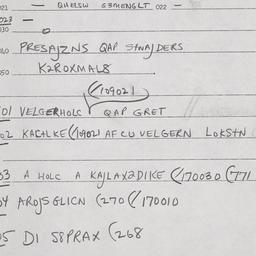 021 — QHELSW G3MENGLT 022 —
023 —
030
040 PRESAJZNS QAP StNAJDERS
050 K2ROXMAL8
(/109021)
01 VELGERHOLC QAP GRET
02 KACHLKE (/19021 AF CU VELGERN LOKStN
03 A HOLC A KAJLAX2DIKE (/170030 (771
04 AROJS GLICN (270 (/170010
05 DI S8PRAX (268